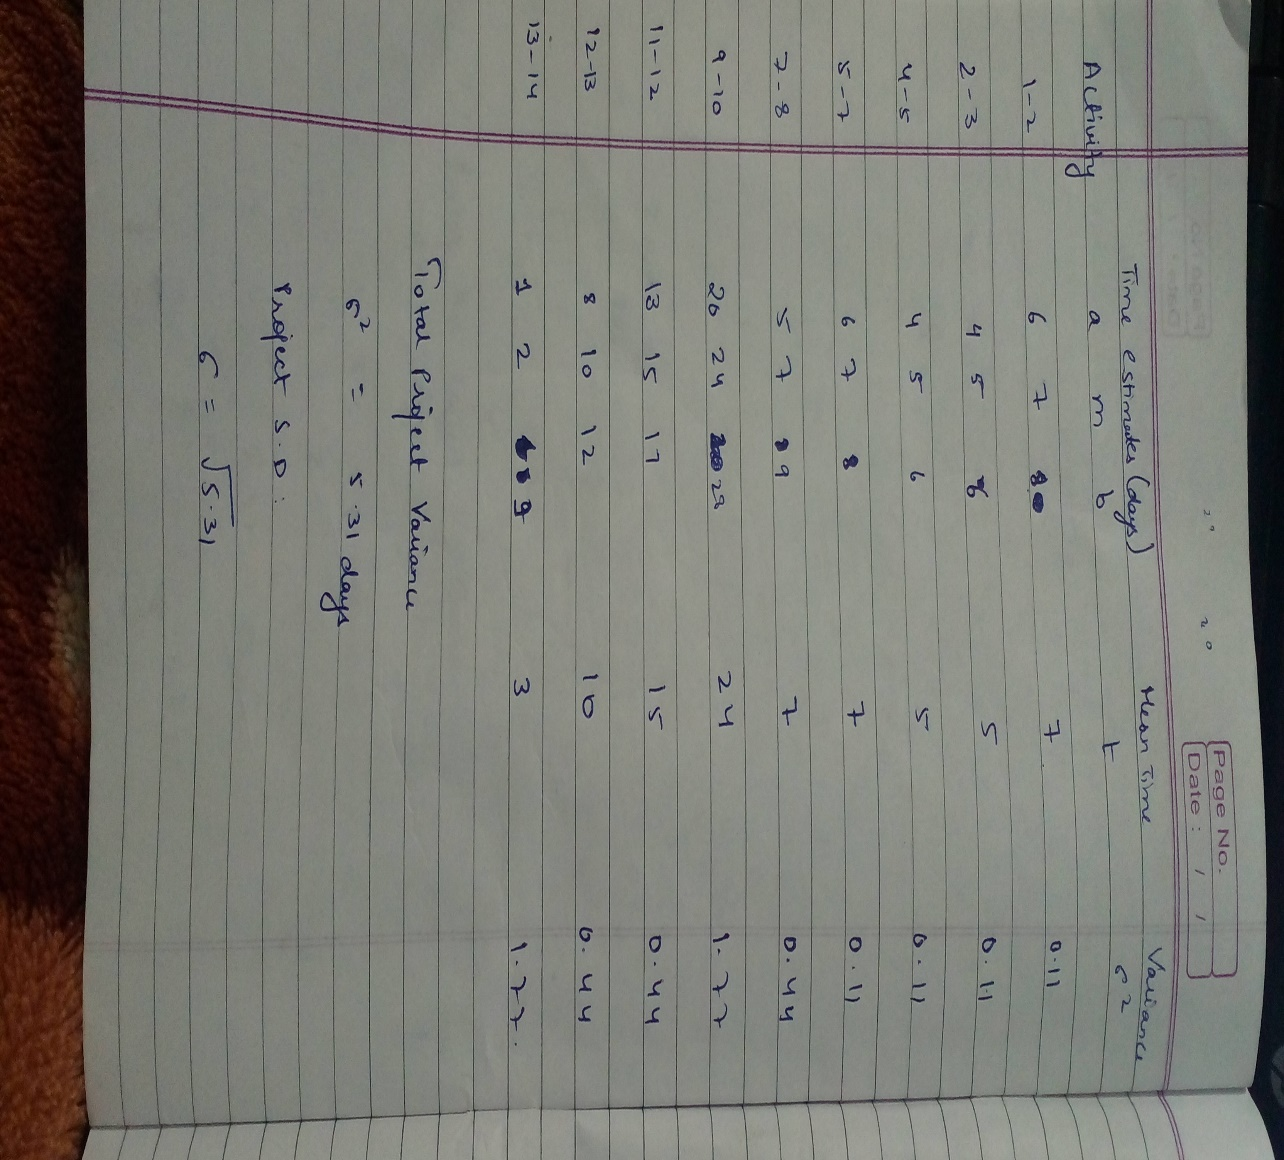 Page No.
Date : / /
Time estimates (days) Mean Time Variance
Activity a m b t σ2
1-2 6 7 8 7 0.11
2-3 4 5 6 5 0.11
4-5 4 5 6 5 0.11
5-7 6 7 8 7 0.11
7-8 5 7 9 7 0.44
9-10 20 24 28 24 1.77
11-12 13 15 17 15 0.44
12-13 8 10 12 10 0.44
13-14 1 2 9 3 1.77.
Total Project Variance
σ2 = 5.31 days
Project S.D :
σ = √5.31